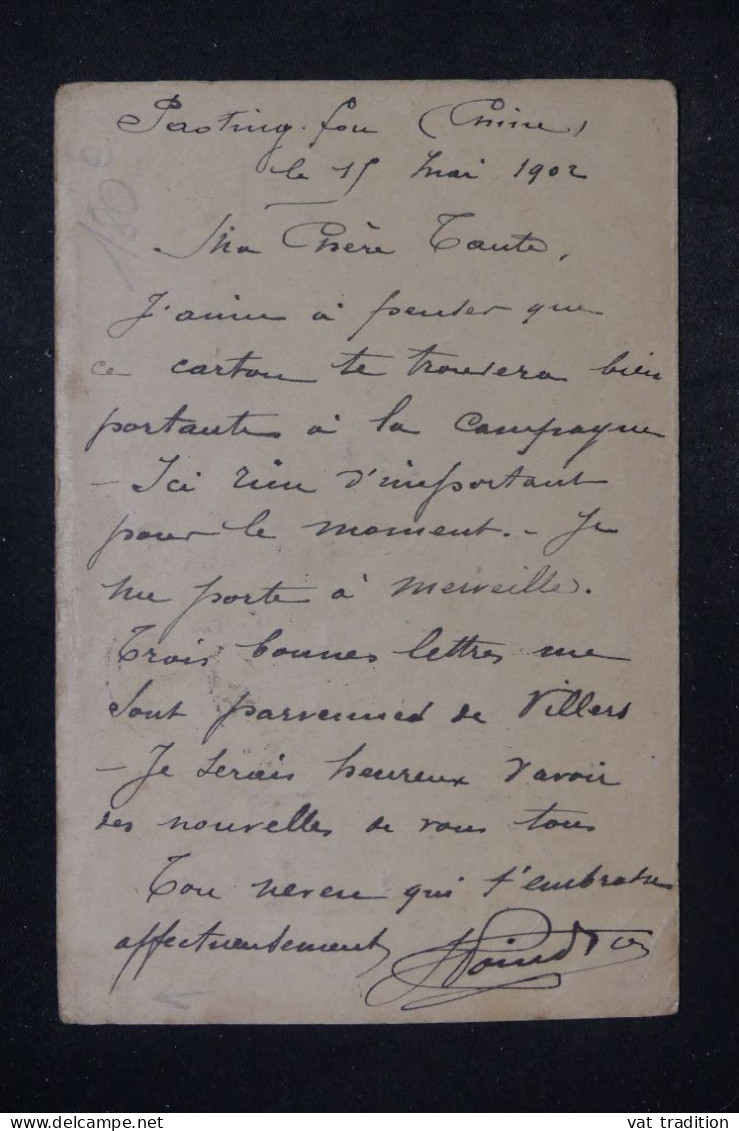 Paoting-fou (Chine)
le 15 Mai 1902
Ma Chère Tante,
J'aime à penser que
ce carton te trouvera bien
portante à la campagne
- Ici rien d'important
pour le moment. - Je
me porte à merveille.
Trois bonnes lettres me
sont parvenues de Villers
- Je serais heureux d'avoir
des nouvelles de vous tous
Ton neveu qui t'embrasse
affectueusement
180 €
vat tradition